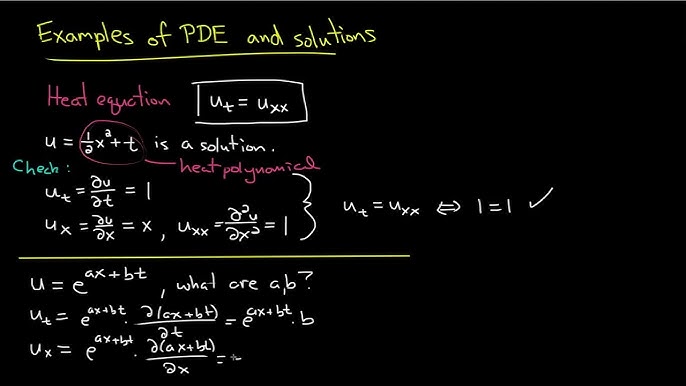 Examples of PDE and solutions
Heat equation u_t = u_xx
u = 1/2 x^2 + t is a solution.
heat polynomical
Check:
u_t = ∂u/∂t = 1
u_x = ∂u/∂x = x, u_xx = ∂^2u/∂x^2 = 1
u_t = u_xx ⇔ 1 = 1 ✓
u = e^{ax+bt}, what are a,b?
u_t = e^{ax+bt} · ∂(ax+bt)/∂t = e^{ax+bt} · b
u_x = e^{ax+bt} · ∂(ax+bt)/∂x =